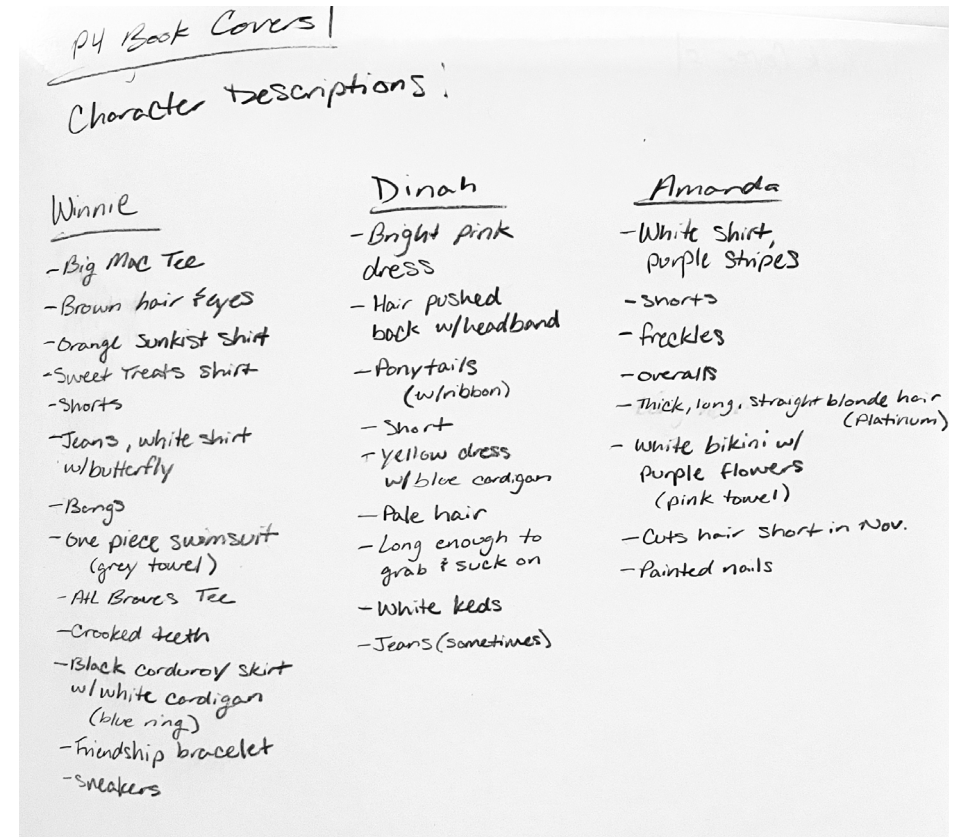 P4 Book Covers
Character Descriptions:
Winnie
- Big Mac Tee
- Brown hair & eyes
- Orange Sunkist Shirt
- Sweet Treats Shirt
- Shorts
- Jeans, white shirt
w/butterfly
- Bangs
- One piece swimsuit
(grey towel)
- Atl Braves Tee
- Crooked teeth
- Black corduroy skirt
w/white cardigan
(blue ring)
- Friendship bracelet
- Sneakers
Dinah
- Bright pink
dress
- Hair pushed
back w/headband
- Ponytails
(w/ribbon)
- Short
- Yellow dress
w/blue cardigan
- Pale hair
- Long enough to
grab & suck on
- White keds
- Jeans (sometimes)
Amanda
- White shirt,
purple stripes
- Shorts
- freckles
- overalls
- Thick, long, straight blonde hair
(Platinum)
- White bikini w/
purple flowers
(pink towel)
- Cuts hair short in Nov.
- Painted nails